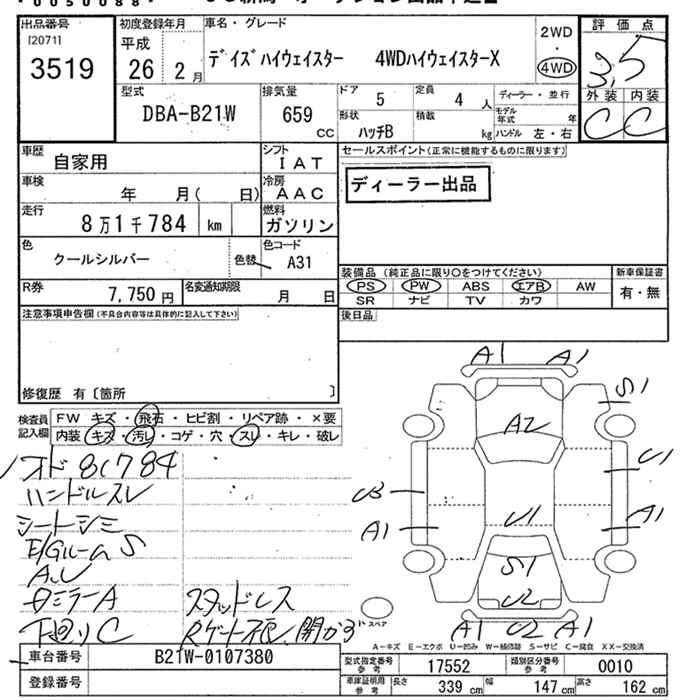 出品番号
[20711
3519
初度登録年月
平成
26 2月
車名・グレード
デイズハイウェイスター 4WDハイウェイスターX
2WD
・
4WD
評価点
3.5
外装 内装
C C
型式
DBA-B21W
排気量
659
CC
ドア
5
定員
4 人
ディーラー・並行
モデル年式 年
形状
ハッチB
積載
kg
ハンドル 左・右
車歴
自家用
シフト
IAT
車検
年 月( 日)
冷房
AAC
走行
8万1千784 km
燃料
ガソリン
色
クールシルバー
色替
色コード
A31
R券
7,750円
名変通知期限
月 日
セールスポイント(正常に機能するものに限ります)
ディーラー出品
装備品(純正品に限り〇をつけてください)
PS PW ABS エアB AW
SR ナビ TV カワ
新車保証書
有・無
後日品
注意事項申告欄(不具合内容等は具体的に記入して下さい)
修復歴 有〔箇所 〕
検査員記入欄
FW キズ・飛石・ヒビ割・リペア跡・×要
内装 キズ・汚レ・コゲ・穴・スレ・キレ・破レ
オド81784
ハンドルスレ
シートシミ
E/GルームS
AU
ミラーA
下廻りC
スタッドレス
A1 A1
S1
A2
U1
U3
A1
U1
A1
S1
U2
A1 U2 A1
スペア
A-キズ E-エクボ U-凹み W-補修跡 S-サビ C-腐食 XX-交換済
車台番号
B21W-0107380
登録番号
型式指定番号
参考
17552
類別区分番号
参考
0010
車庫証明用
参考
長さ 339 cm 幅 147 cm 高さ 162 cm